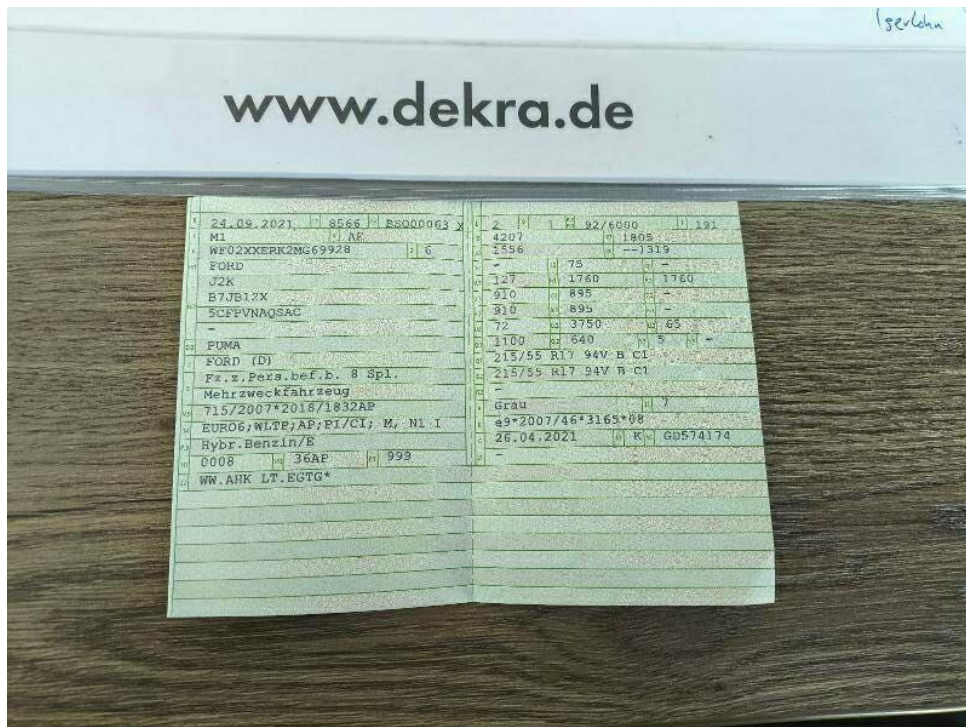 Iserlohn
www.dekra.de
24.09.2021 8566 BSO00063 X
M1 AF
WF02XXERK2MG69928 6
FORD
J2K
B7JB12X
5CFPVNAQSAC
-
PUMA
FORD (D)
Fz.z.Pers.bef.b. 8 Spl.
Mehrzweckfahrzeug
715/2007*2018/1832AP
EURO6;WLTP;AP;PI/CI; M, N1 I
Hybr.Benzin/E
0008 36AP 999
WW.AHK LT.EGTG*
2 1 92/6000 191
4207 1805
1556 --1319
- 75 -
127 1760 1760
910 895 -
910 895 -
72 3750 65
1100 640 5 -
215/55 R17 94V B C1
215/55 R17 94V B C1
-
Grau 7
e9*2007/46*3165*08
26.04.2021 K GD574174
-